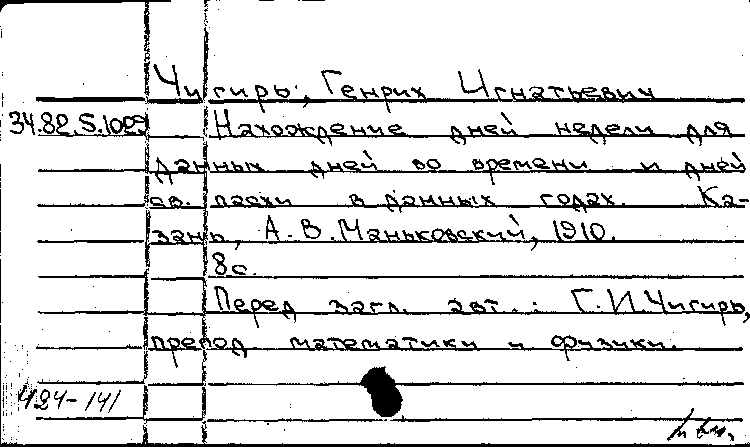 Чигирь, Генрих Игнатьевич
34.82.5.1029 Нахождение дней недели для
данных дней во времени и дней
св. пасхи в данных годах. Ка-
зань, А.В.Маньковский, 1910.
8с.
Перед загл. авт.: Г.И.Чигирь,
препод. математики и физики.
484-141